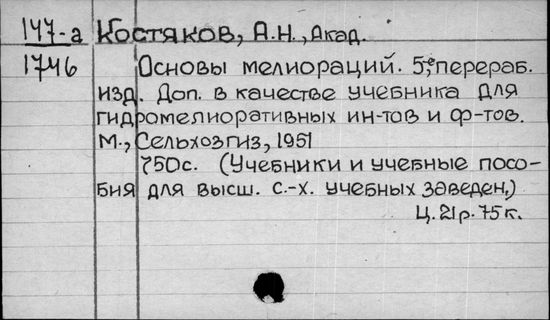 147-а Костяков, А.Н., Акад.
1746 Основы мелиораций. 5,е перераб.
изд. Доп. в качестве учебника для
гидромелиоративных ин-тов и ф-тов.
М., Сельхозгиз, 1951
750с. (Учебники и учебные посо-
бия для высш. с.-х. учебных заведен.)
Ц. 21р. 75к.